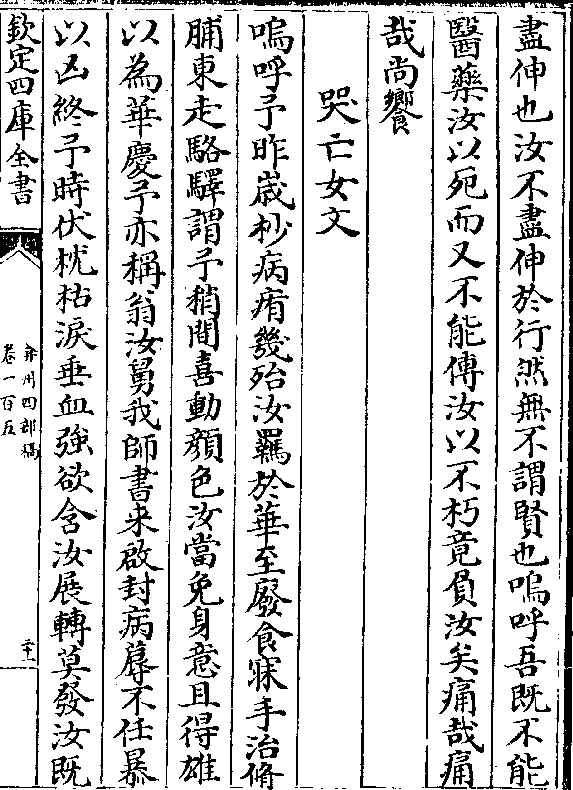 盡伸也汝不盡伸於行然無不謂賢也嗚呼吾既不能
醫藥汝以死而又不能傳汝以不朽竟負汝矣痛哉痛
哉尚饗
哭亡女文
嗚呼予昨嵗杪病痏幾殆汝羈於華至廢食寐手治脩
脯東走駱驛謂予稍間喜動顔色汝當免身意且得雄
以為華慶予亦稱翁汝舅我師書来啟封病蓐不任暴
以凶終予時伏枕枯淚垂血強欲含汝展轉莫發汝既
欽定四庫全書
弇州四部稿
卷一百五
二十一